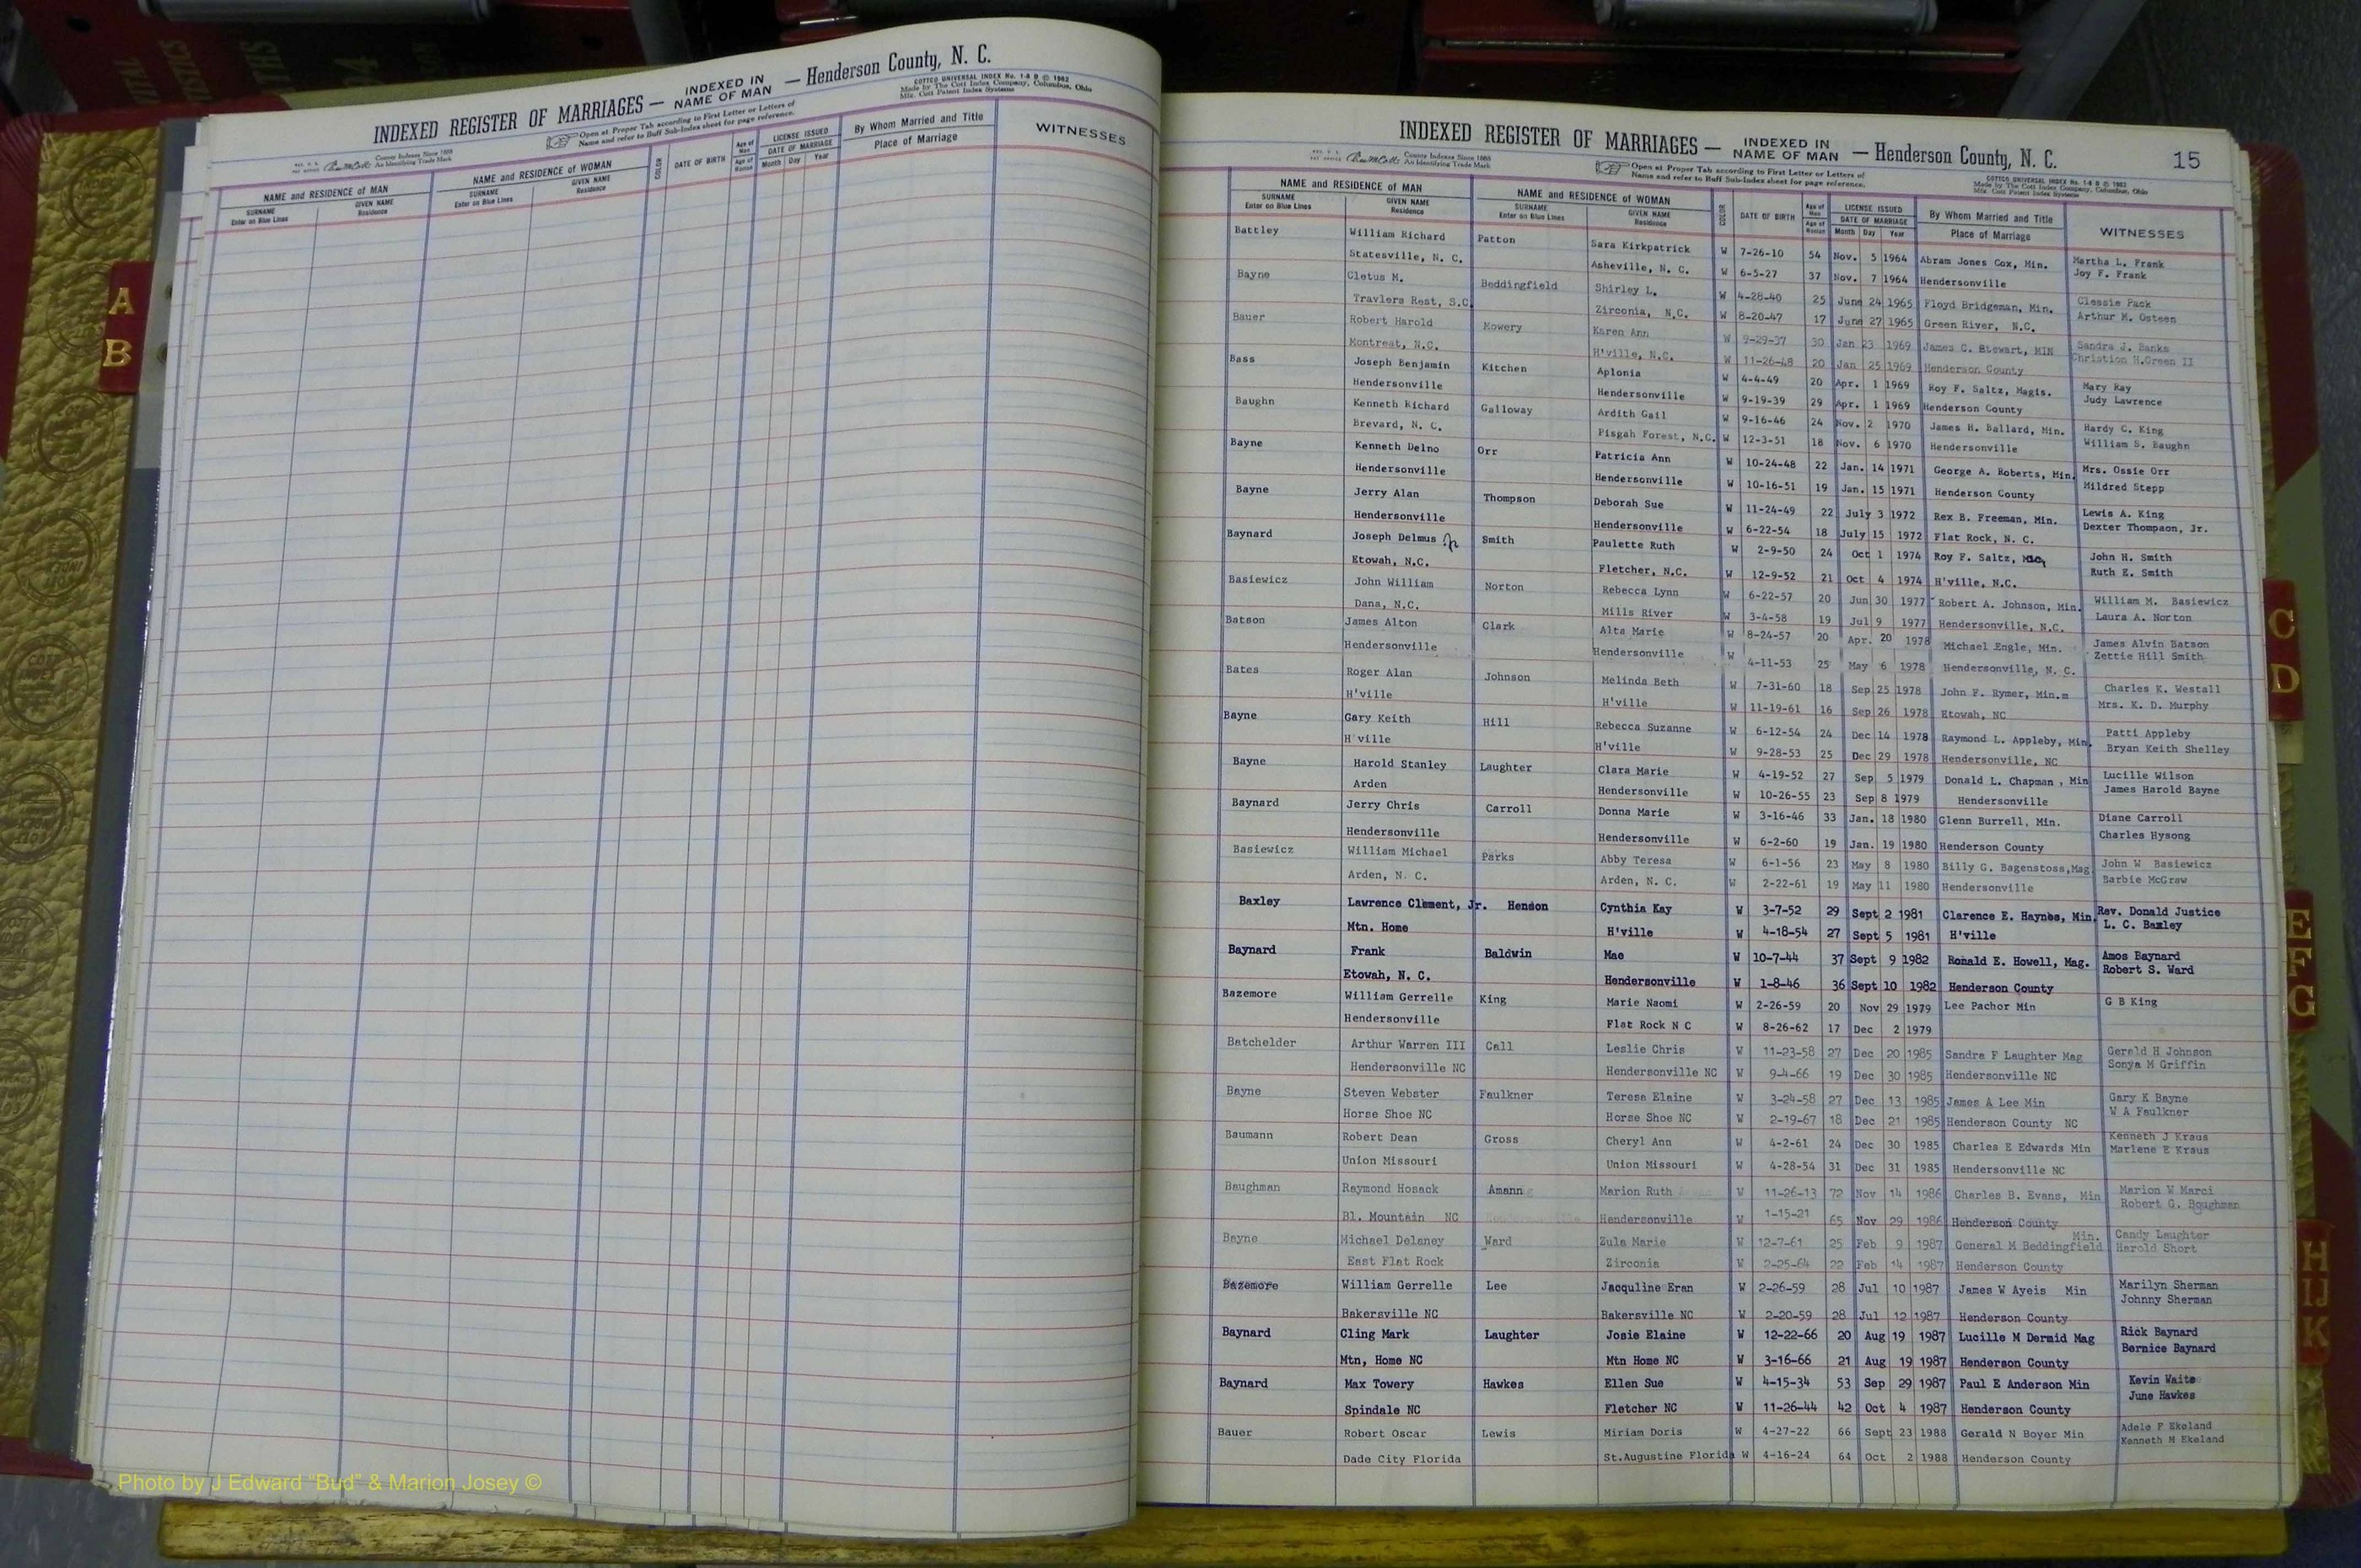 INDEXED REGISTER OF MARRIAGES — INDEXED IN NAME OF MAN — Henderson County, N. C.
COTTCO UNIVERSAL INDEX No. 1-8 B © 1962
Made by The Cott Index Company, Columbus, Ohio
Mfg. Cott Patent Index Systems
County Indexes Since 1888
An Identifying Trade Mark
Open at Proper Tab according to First Letter or Letters of
Name and refer to Buff Sub-Index sheet for page reference.
NAME and RESIDENCE OF MAN NAME and RESIDENCE OF WOMAN COLOR DATE OF BIRTH Age of Man LICENSE ISSUED By Whom Married and Title WITNESSES
SURNAME GIVEN NAME SURNAME GIVEN NAME Age of Woman DATE OF MARRIAGE Place of Marriage
Enter on Blue Lines Residence Enter on Blue Lines Residence Month Day Year
A
B
INDEXED REGISTER OF MARRIAGES — INDEXED IN NAME OF MAN — Henderson County, N. C. 15
County Indexes Since 1888
An Identifying Trade Mark
Open at Proper Tab according to First Letter or Letters of
Name and refer to Buff Sub-Index sheet for page reference.
COTTCO UNIVERSAL INDEX No. 1-8 B © 1962
Made by The Cott Index Company, Columbus, Ohio
Mfg. Cott Patent Index Systems
NAME and RESIDENCE OF MAN NAME and RESIDENCE OF WOMAN COLOR DATE OF BIRTH Age of Man LICENSE ISSUED By Whom Married and Title WITNESSES
SURNAME GIVEN NAME SURNAME GIVEN NAME Age of Woman DATE OF MARRIAGE Place of Marriage
Enter on Blue Lines Residence Enter on Blue Lines Residence Month Day Year
Battley William Richard Patton Sara Kirkpatrick W 7-26-10 54 Nov. 5 1964 Abram Jones Cox, Min. Martha L. Frank
Statesville, N. C. Asheville, N. C. W 6-5-27 37 Nov. 7 1964 Hendersonville Joy F. Frank
Bayne Cletus M. Beddingfield Shirley L. W 4-28-40 25 June 24 1965 Floyd Bridgeman, Min. Clessie Pack
Travlers Rest, S.C. Zirconia, N.C. W 8-20-47 17 June 27 1965 Green River, N.C. Arthur M. Osteen
Bauer Robert Harold Mowery Karen Ann W 9-29-37 30 Jan 23 1969 James C. Stewart, MIN Sandra J. Banks
Montreat, N.C. H'ville, N.C. W 11-26-48 20 Jan 25 1969 Henderson County Christion H.Green II
Bass Joseph Benjamin Kitchen Aplonia W 4-4-49 20 Apr. 1 1969 Roy F. Saltz, Magis. Mary Ray
Hendersonville Hendersonville W 9-19-39 29 Apr. 1 1969 Henderson County Judy Lawrence
Baughn Kenneth Richard Galloway Ardith Gail W 9-16-46 24 Nov. 2 1970 James H. Ballard, Min. Hardy C. King
Brevard, N. C. Pisgah Forest, N.C. W 12-3-51 18 Nov. 6 1970 Hendersonville William S. Baughn
Bayne Kenneth Delno Orr Patricia Ann W 10-24-48 22 Jan. 14 1971 George A. Roberts, Min. Mrs. Ossie Orr
Hendersonville Hendersonville W 10-16-51 19 Jan. 15 1971 Henderson County Mildred Stepp
Bayne Jerry Alan Thompson Deborah Sue W 11-24-49 22 July 3 1972 Rex B. Freeman, Min. Lewis A. King
Hendersonville Hendersonville W 6-22-54 18 July 15 1972 Flat Rock, N. C. Dexter Thompson, Jr.
Baynard Joseph Delmus Jr Smith Paulette Ruth W 2-9-50 24 Oct 1 1974 Roy F. Saltz, John H. Smith
Etowah, N.C. Fletcher, N.C. W 12-9-52 21 Oct 4 1974 H'ville, N.C. Ruth E. Smith
Basiewicz John William Norton Rebecca Lynn W 6-22-57 20 Jun 30 1977 Robert A. Johnson, Min. William M. Basiewicz
Dana, N.C. Mills River W 3-4-58 19 Jul 9 1977 Hendersonville, N.C. Laura A. Norton
Batson James Alton Clark Alta Marie W 8-24-57 20 Apr. 20 1978 Michael Engle, Min. James Alvin Batson
Hendersonville Hendersonville W 4-11-53 25 May 6 1978 Hendersonville, N. C. Zettie Hill Smith
Bates Roger Alan Johnson Melinda Beth W 7-31-60 18 Sep 25 1978 John F. Rymer, Min.m Charles K. Westall
H'ville H'ville W 11-19-61 16 Sep 26 1978 Etowah, NC Mrs. K. D. Murphy
Bayne Gary Keith Hill Rebecca Suzanne W 6-12-54 24 Dec 14 1978 Raymond L. Appleby, Min. Patti Appleby
H'ville H'ville W 9-28-53 25 Dec 29 1978 Hendersonville, NC Bryan Keith Shelley
Bayne Harold Stanley Laughter Clara Marie W 4-19-52 27 Sep 5 1979 Donald L. Chapman , Min Lucille Wilson
Arden Hendersonville W 10-26-55 23 Sep 8 1979 Hendersonville James Harold Bayne
Baynard Jerry Chris Carroll Donna Marie W 3-16-46 33 Jan. 18 1980 Glenn Burrell, Min. Diane Carroll
Hendersonville Hendersonville W 6-2-60 19 Jan. 19 1980 Henderson County Charles Hysong
Basiewicz William Michael Parks Abby Teresa W 6-1-56 23 May 8 1980 Billy G. Bagenstoss,Mag John W Basiewicz
Arden, N. C. Arden, N. C. W 2-22-61 19 May 11 1980 Hendersonville Barbie McGraw
Baxley Lawrence Clement, Jr. Henson Cynthia Kay W 3-7-52 29 Sept 2 1981 Clarence E. Haynes, Min. Rev. Donald Justice
Mtn. Home H'ville W 4-18-54 27 Sept 5 1981 H'ville L. C. Baxley
Baynard Frank Baldwin Mae W 10-7-44 37 Sept 9 1982 Ronald E. Howell, Mag. Amos Baynard
Etowah, N. C. Hendersonville W 1-8-46 36 Sept 10 1982 Henderson County Robert S. Ward
Bazemore William Gerrelle King Marie Naomi W 2-26-59 20 Nov 29 1979 Lee Pachor Min G B King
Hendersonville Flat Rock N C W 8-26-62 17 Dec 2 1979
Batchelder Arthur Warren III Call Leslie Chris W 11-23-58 27 Dec 20 1985 Sandra F Laughter Mag Gerald H Johnson
Hendersonville NC Hendersonville NC W 9-4-66 19 Dec 30 1985 Hendersonville NC Sonya M Griffin
Bayne Steven Webster Faulkner Teresa Elaine W 3-24-58 27 Dec 13 1985 James A Lee Min Gary K Bayne
Horse Shoe NC Horse Shoe NC W 2-19-67 18 Dec 21 1985 Henderson County NC W A Faulkner
Baumann Robert Dean Gross Cheryl Ann W 4-2-61 24 Dec 30 1985 Charles E Edwards Min Kenneth J Kraus
Union Missouri Union Missouri W 4-28-54 31 Dec 31 1985 Hendersonville NC Marlene E Kraus
Baughman Raymond Hosack Amann Marion Ruth W 11-26-13 72 Nov 14 1986 Charles B. Evans, Min Marion W Marci
Bl. Mountain NC Hendersonville W 1-15-21 65 Nov 29 1986 Henderson County Robert G. Boughman
Bayne Michael Delaney Ward Zula Marie W 12-7-61 25 Feb 9 1987 General M Beddingfield Min. Candy Laughter
East Flat Rock Zirconia W 2-25-64 22 Feb 14 1987 Henderson County Harold Short
Bazemore William Gerrelle Lee Jacquline Eran W 2-26-59 28 Jul 10 1987 James W Ayeis Min Marilyn Sherman
Bakersville NC Bakersville NC W 2-20-59 28 Jul 12 1987 Henderson County Johnny Sherman
Baynard Cling Mark Laughter Josie Elaine W 12-22-66 20 Aug 19 1987 Lucille M Dermid Mag Rick Baynard
Mtn, Home NC Mtn Home NC W 3-16-66 21 Aug 19 1987 Henderson County Bernice Baynard
Baynard Max Towery Hawkes Ellen Sue W 4-15-34 53 Sep 29 1987 Paul E Anderson Min Kevin Waite
Spindale NC Fletcher NC W 11-26-44 42 Oct 4 1987 Henderson County June Hawkes
Bauer Robert Oscar Lewis Miriam Doris W 4-27-22 66 Sept 23 1988 Gerald N Boyer Min Adele F Ekeland
Dade City Florida St.Augustine Florida W 4-16-24 64 Oct 2 1988 Henderson County Kenneth M Ekeland
C
D
E
F
G
H
IJ
K
Photo by J Edward "Bud" & Marion Josey ©